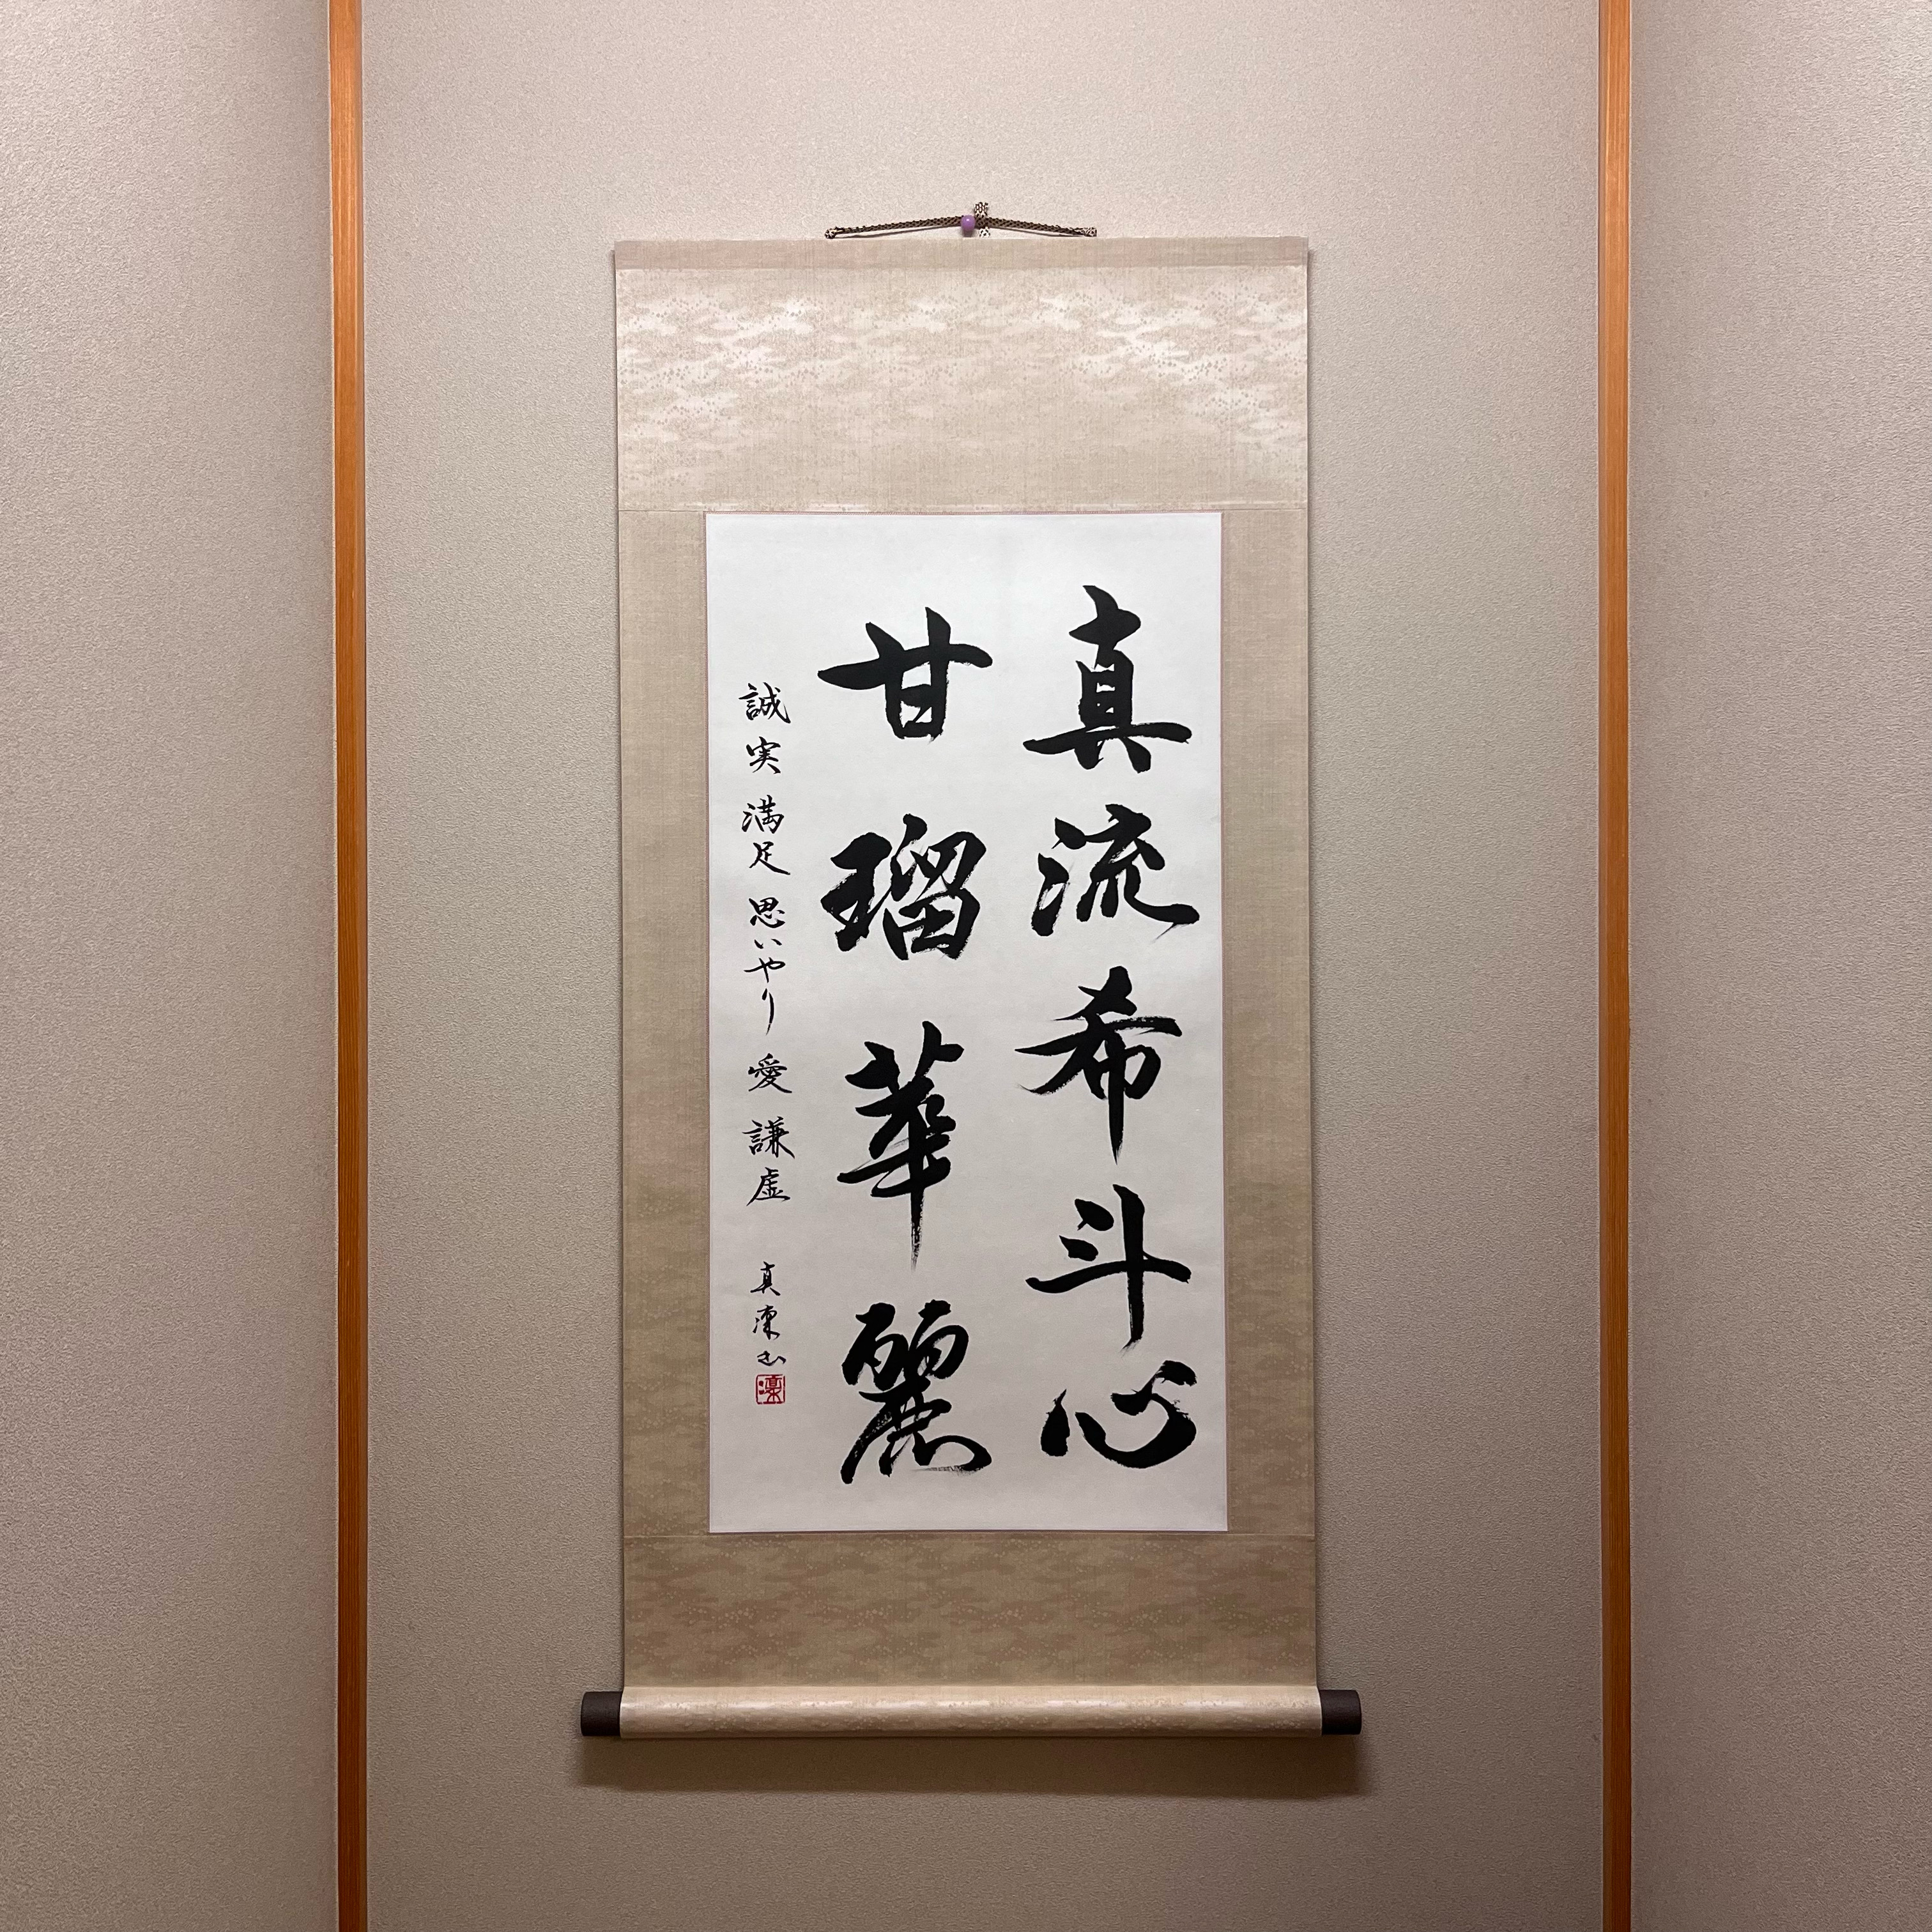 真流希斗心
甘瑠華麗
誠実 満足 思いやり 愛 謙虚
真凜書